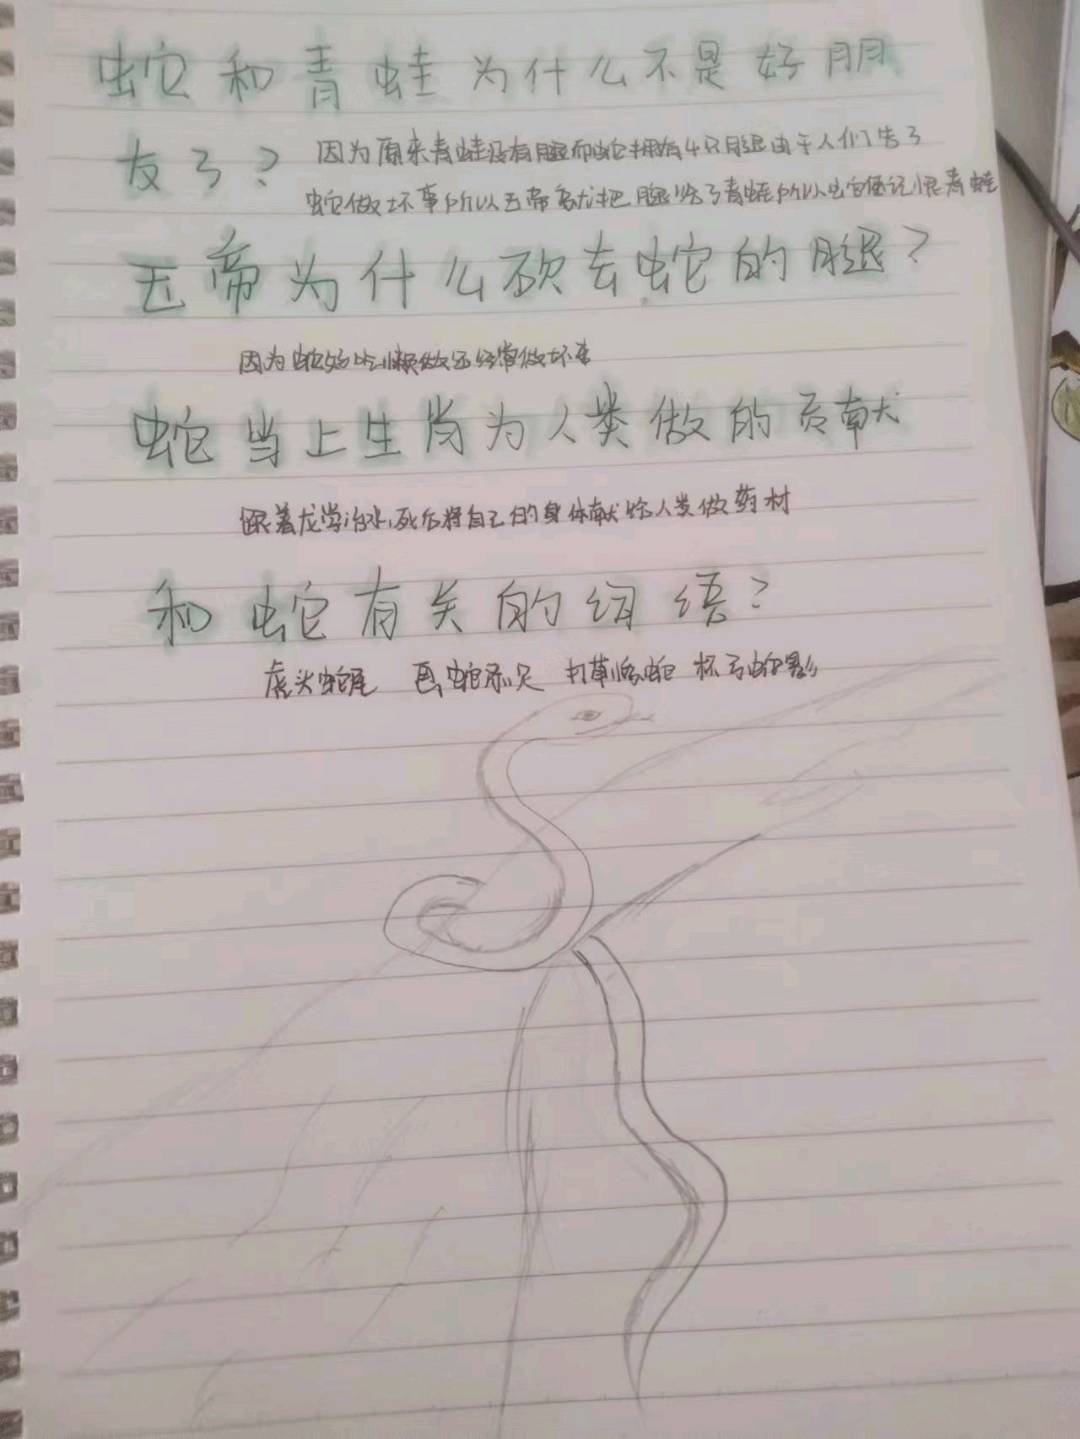 蛇和青蛙为什么不是好朋
友了？因为原来青蛙没有腿而蛇拥有4只腿由于人们告了
蛇做坏事所以玉帝就把腿给了青蛙所以蛇便记恨青蛙
玉帝为什么砍去蛇的腿？
因为蛇好吃懒做还经常做坏事
蛇当上生肖为人类做的贡献
跟着龙学治水,死后将自己的身体献给人类做药材
和蛇有关的词语？
虎头蛇尾 画蛇添足 打草惊蛇 杯弓蛇影